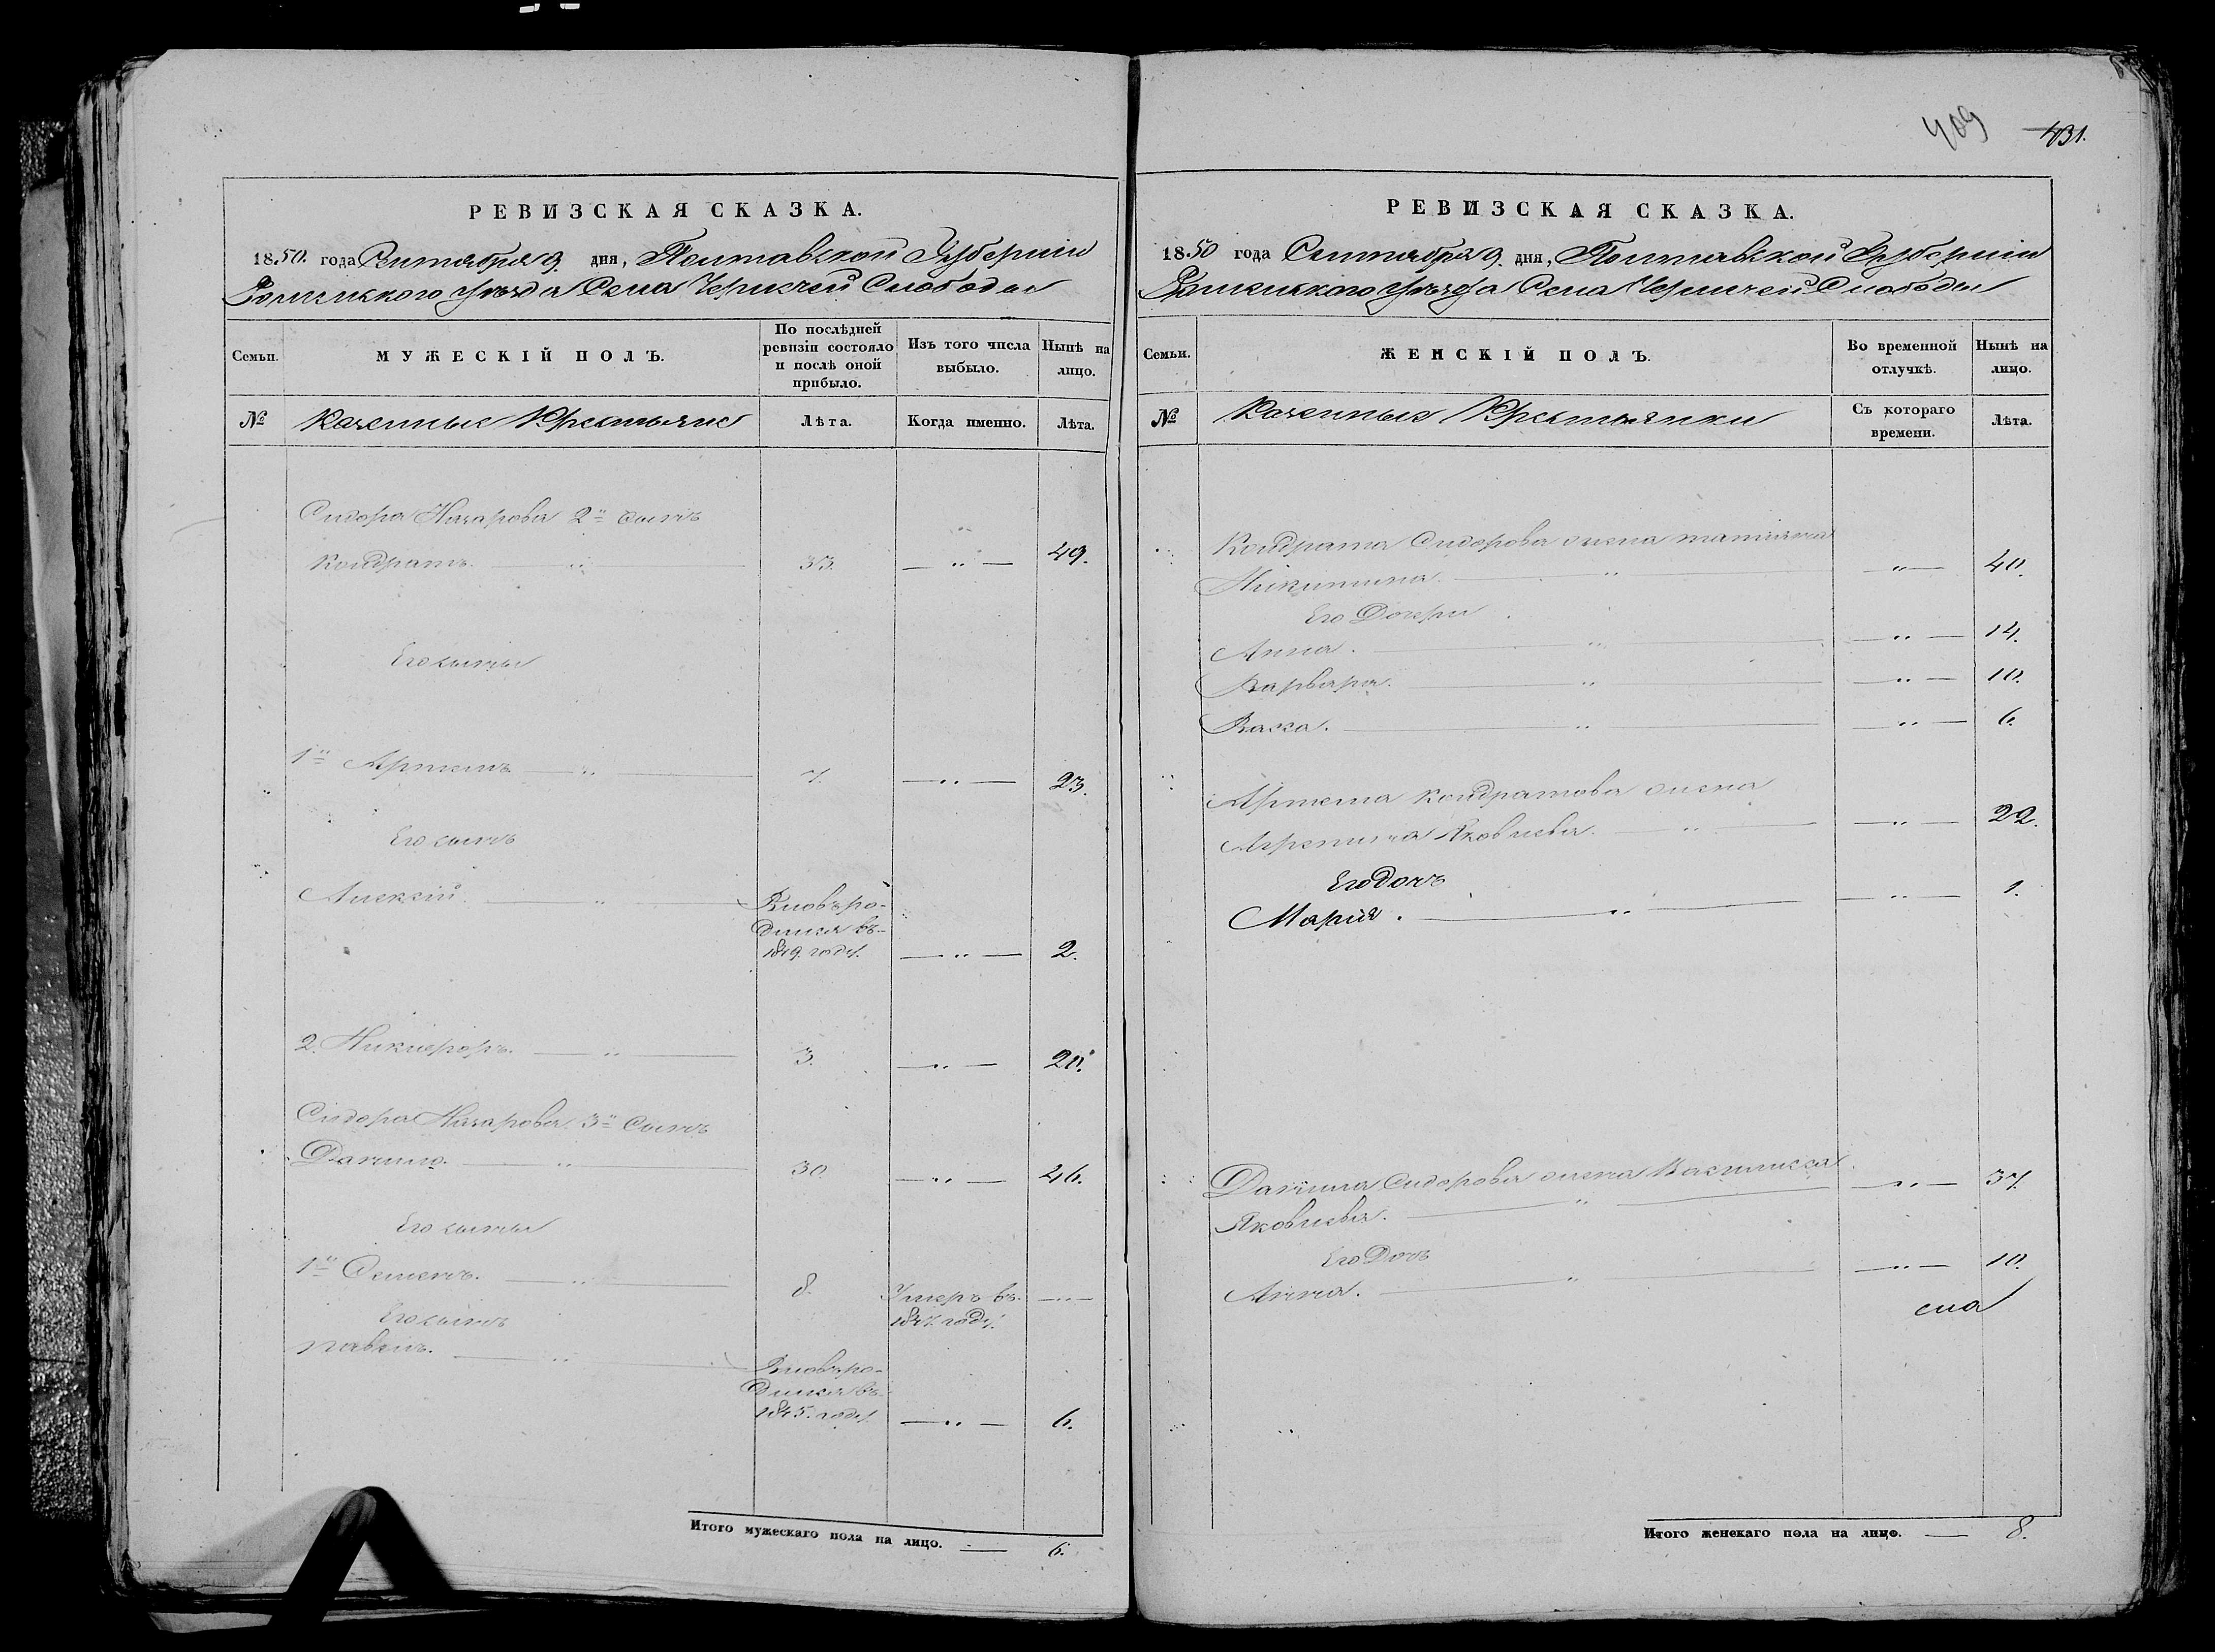 409 431.
РЕВИЗСКАЯ СКАЗКА.
1850. года Сентября 9. дня, Полтавской Губернии
Роменского Уезда Села Чернечей Слободы
Семьи.
МУЖЕСКІЙ ПОЛЪ.
По послѣдней ревизіи состояло и послѣ оной прибыло.
Изъ того числа выбыло.
Нынѣ на лицо.
№
Казенные Крестьяне
Лѣта.
Когда именно.
Лѣта.
Сидора Назарова 2й сынъ
Кондратъ. — " — 33. — " — 49.
Его сыны
1й Артемъ — " — 7. — " — 23.
Его сынъ
Алексѣй. — " — Вновь ро-
дился въ
1849. году. — " — 2.
2. Никифоръ. — " — 3. — " — 20.
Сидора Назарова 3й Сынъ
Данило. — " — 30. — " — 46.
Его сыны
1й Семенъ. — " — 8. Умеръ въ — " —
1847 году.
Его сынъ
Павелъ. — " — Вновь ро-
дился въ
1845. году. — " — 6.
Итого мужескаго пола на лицо. — 6.
РЕВИЗСКАЯ СКАЗКА.
1850 года Сентября 9. дня, Полтавской Губернии
Роменского Уезда Села Чернечей Слободы
Семьи.
ЖЕНСКІЙ ПОЛЪ.
Во временной отлучкѣ.
Нынѣ на лицо.
№
Казенные Крестьянки
Съ котораго времени.
Лѣта.
Кондрата Сидорова жена татіяна
Никитина. — " — " — 40.
Его Дочери
Анна. — " — " — 14.
Варвара. — " — " — 10.
Васса. — " — " — 6.
Артема Кондратова жена
Агрепина Яковлева. — " — " — 22.
Его Дочь
Марія. — " — " — 1.
Данила Сидорова жена Василисса — " — 37.
Яковлева. — " —
Его Дочь
Анна. — " — " — 10.
Итого женскаго пола на лицо. — 8.